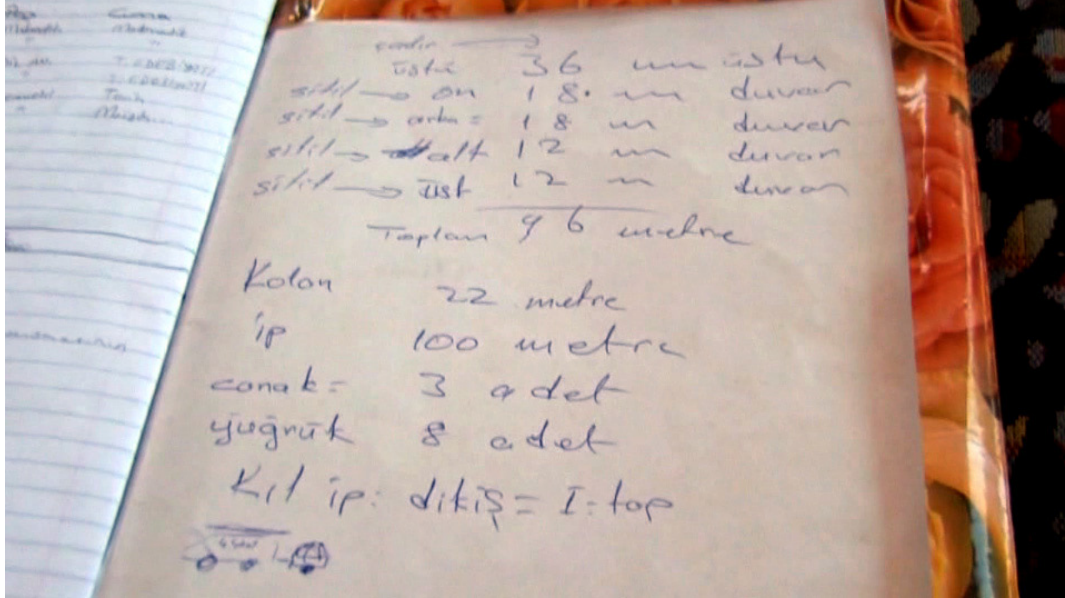 çadır →
üstü 36 m üstü
sitil → ön 18. m duvar
sitil → arka = 18 m duvar
sitil → alt 12 m duvar
sitil → üst 12 m duvar
Toplam 96 metre
Kolon 22 metre
ip 100 metre
canak = 3 adet
yuğrük 8 adet
Kıl ip: dikiş = I: top
T. EDEBİYATI
Tarih